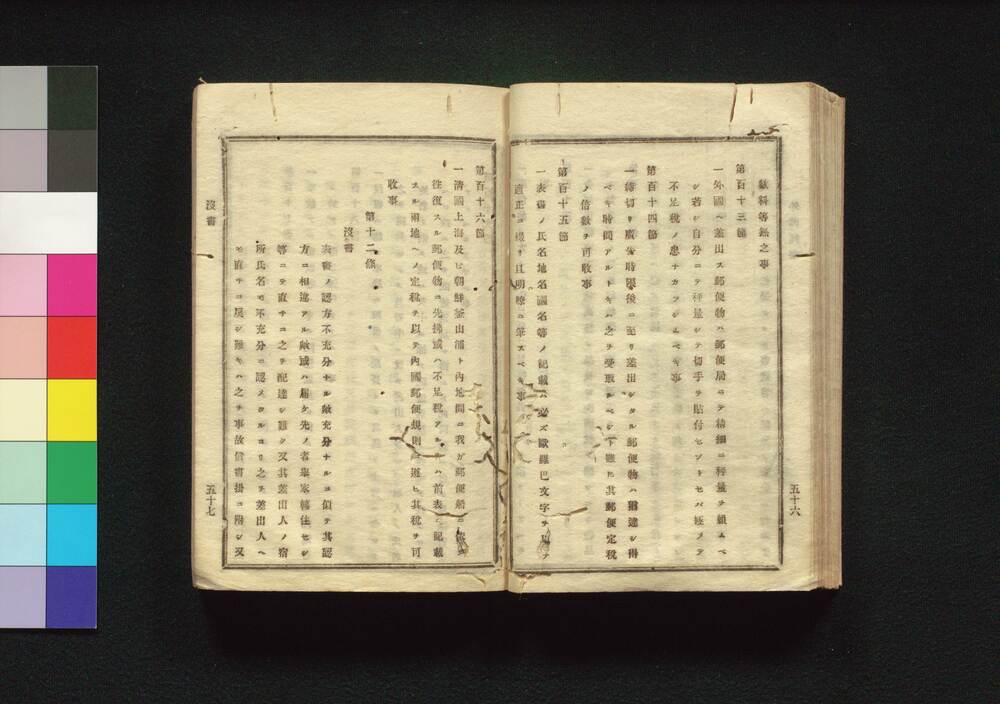 獻料等級之事
第百十三節
一外國ヘ差出ス郵便物ハ郵便局ニテ精細ニ秤量ヲ願フベ
シ若シ自分ニテ秤量シテ切手ヲ貼付セントセバ極メテ
不足税ノ患ナカラシムベキ事
第百十四節
一締切リ廣告時限後ニ至リ差出シタル郵便物ハ遞達シ得
ベキ時間アルトキハ之ヲ受取ルベシト雖ヒ其郵便定税
ノ倍數ヲ可收事
第百十五節
一表書ノ氏名地名國名等ノ記載ハ必ズ歐羅巴文字ヲ用ヰテ
適正ニ綴リ且明瞭ニ筆スベキ事
五十六
第百十六節
一淸國上海及ヒ朝鮮釜山浦ト內地間ニ我ガ郵便船ニ依テ
往復スル郵便物ニ先拂或ハ不足税アルトキハ前表ニ記載
スル兩地ヘノ定税ヲ以テ內國郵便規則ニ遵ヒ其税ヲ可
收事
第十二條
沒書
表書ノ認方不充分ナル歟充分ナルコ似テ其認
方ニ相違アル歟或ハ屆ケ先ノ者擧家轉住セシ
等ニテ直チニ之ヲ配達シ難ク又其差出人ノ宿
所氏名モ不充分ニ認メタルヨリ之ヲ差出人ヘ
モ直チニ戾シ難キハ之ヲ事故信書掛ニ附シ又
沒書
五十七